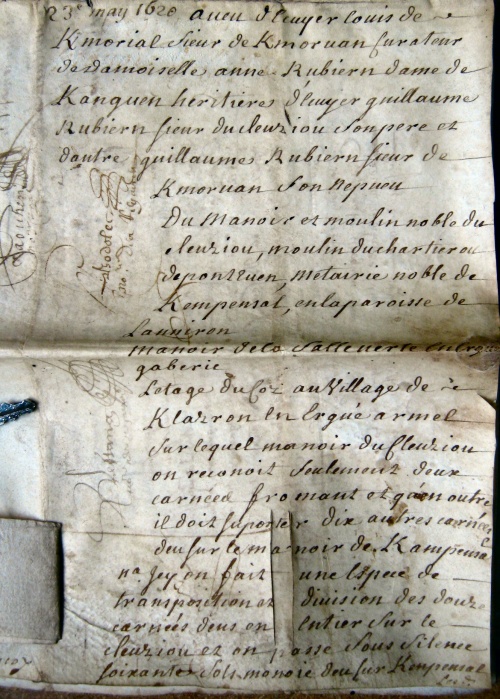 23e may 1620 aveu d'Ecuyer louis de
Kmorial sieur de Kmorvan Curateur
de damoiselle anne Rubiern dame de
Kanguen heritiere d'Ecuyer guillaume
Rubiern sieur du cleuziou son pere et
dautre guillaume Rubiern sieur de
Kmorvan son nepveu
Du Manoir et moulin noble du
cleuziou, moulin du chartier ou
de pontzuen, metairie noble de
Kempensal, en la paroisse de
Launiron
manoir de la Salleverte en Ergue
gaberic
Letage du Coz au Village de
Klazron En Ergué armel
Sur lequel manoir du Cleuziou
on reconoit seulement deux
carnées fromant et qu'en outre
il doit suporter dix autres carnées
deu sur le manoir de Kampensal
na. Icy on fait une Espece de
transposition et division des douze
carnées deus en entier sur le
cleuziou et on passe sous silence
soixante sols monoie deu sur Kempensal